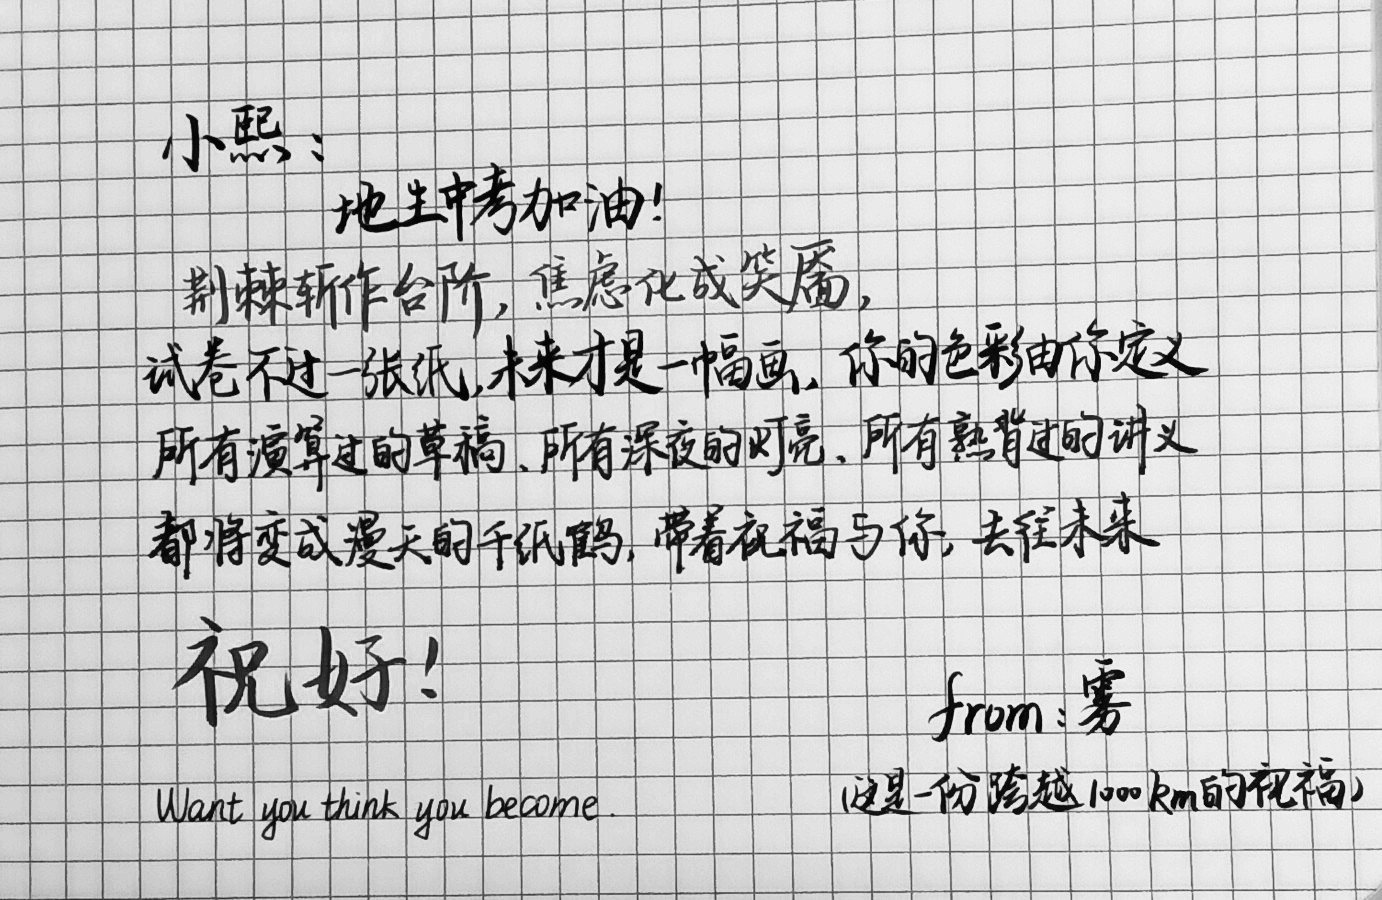 小熙：
地生中考加油！
荆棘斩作台阶，焦虑化成笑靥，
试卷不过一张纸，未来才是一幅画、你的色彩由你定义
所有演算过的草稿、所有深夜的灯亮、所有熟背过的讲义
都将变成漫天的千纸鹤，带着祝福与你，去往未来
祝好！
from：雾
（这是一份跨越1000km的祝福）
Want you think you become.